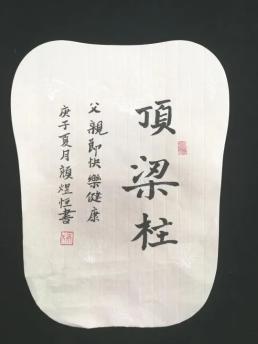 頂梁柱
父親節快樂健康
庚子夏月顏煜恒書